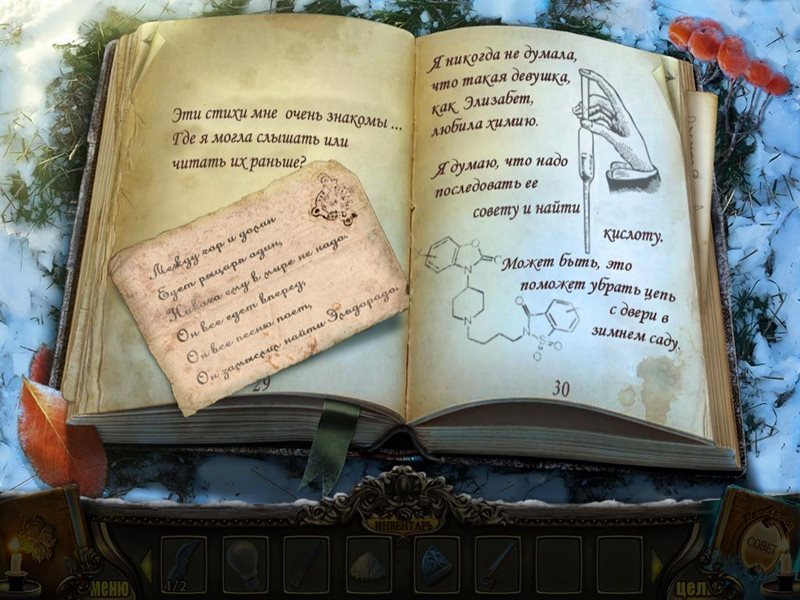 Эти стихи мне очень знакомы ...
Где я могла слышать или
читать их раньше?
Между гор и долин
Едет рыцарь один,
Никого ему в мире не надо.
Он все едет вперед,
Он все песню поет,
Он замыслил найти Эльдорадо.
29
Я никогда не думала,
что такая девушка,
как Элизабет,
любила химию.
Я думаю, что надо
последовать ее
совету и найти
кислоту.
Может быть, это
поможет убрать цепь
с двери в
зимнем саду.
30
ИНВЕНТАРЬ
1/2
МЕНЮ
СОВЕТ